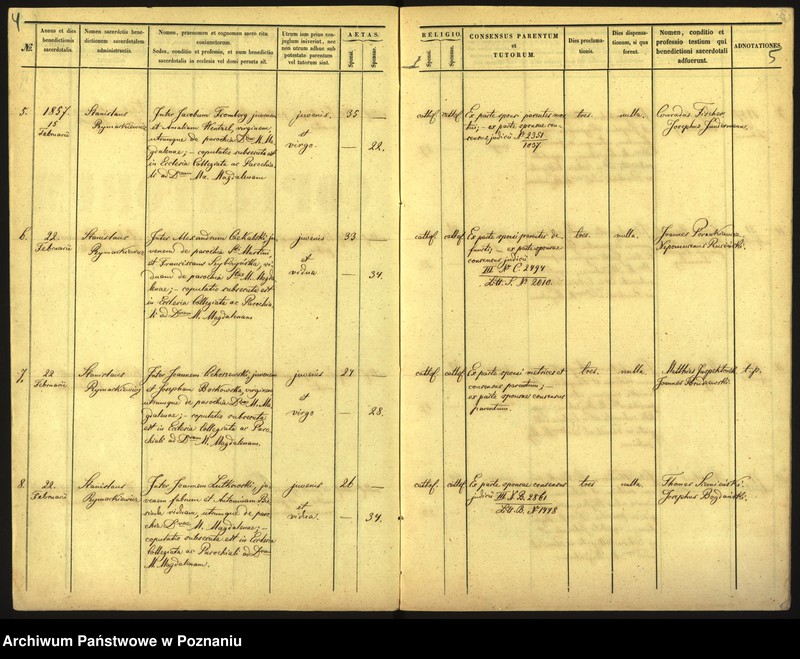 4
№
Annus et dies
benedictionis
sacerdotalis.
Nomen sacerdotis bene-
dictionem sacerdotalem
administrantis.
Nomen, praenomen et cognomen sacro ritu
conjunctorum.
Sedes, conditio et professio, et num benedictio
sacerdotalis in ecclesia vel domi peracta sit.
Utrum jam prius con-
jugium inierint, nec
non utrum adhuc sub
potestate parentum
vel tutorum sint.
AETAS.
Sponsi.
Sponsae.
RELIGIO.
Sponsi.
Sponsae.
CONSENSUS PARENTUM
et
TUTORUM.
Dies proclama-
tionis.
Dies dispensa-
tionum, si qua
forent.
Nomen, conditio et
professio testium qui
benedictioni sacerdotali
adfuerunt.
ADNOTATIONES.
5
5.
1857.
15.
Februarii
Stanislaus
Rymarkiewicz
Inter Jacobum Fromberg, juvenem
et Amaliam Hentzel, virginem,
utrumque de parochia Dnae M. Ma-
gdalenae; – copulatio subsecuta est
in Ecclesia Collegiata ac Parochia-
li ad Dnam Mr. Magdalenam
juvenis
et
virgo.
35
—
—
22.
cathol.
cathol.
Ex parte sponsi parentes mor-
tui; – ex parte sponsae con-
sensus judicii № 2351
1037.
tres.
nulla.
Conradus Fischer,
Josephus
6.
22.
Februarii
Stanislaus
Rymarkiewicz
Inter Alexandrum Cekalski, ju-
venem de parochia St. Martini,
et Franciscam vi-
duam de parochia Stae M. Magda-
lenae; – copulatio subsecuta est
in Ecclesia Collegiata ac Parochia-
li ad Dnam M. Magdalenam
juvenis
et
vidua.
33
—
—
34.
cathol.
cathol.
Ex parte sponsi parentes de-
functi; – ex parte sponsae
consensus judicii
III № C. 2494
Litt. S. № 2010.
tres.
nulla.
Joannes
Nepomucenus Rusiecki.
7.
22
Februarii
Stanislaus
Rymarkiewicz
Inter Joannem juvenem
et Josepham Bochowska, virginem
utrumque de parochia Dnae M. Ma-
gdalenae; – copulatio subsecuta
est in Ecclesia Collegiata ac Paro-
chiali ad Dnam M. Magdalenam.
juvenis
et
virgo
27
—
—
28.
cathol.
cathol.
Ex parte sponsi matrices et
consensus parentum; –
ex parte sponsae consensus
parentum.
tres.
nulla.
Joannes
8.
22.
Februarii
Stanislaus
Rymarkiewicz
Inter Joannem Lutkowski, ju-
venem fabrum et Antoninam
viduam, utrumque de paro-
chia Dnae M. Magdalenae; –
copulatio subsecuta est in Ecclesia
Collegiata ac Parochiali ad Dnam
M. Magdalenam.
juvenis
et
vidua.
26
—
—
34.
cathol.
cathol.
Ex parte sponsae consensus
judicii III № B. 2861
Litt. B. № 1948
tres
nulla.
Thomas
Josephus Bogdański.
Archiwum Państwowe w Poznaniu